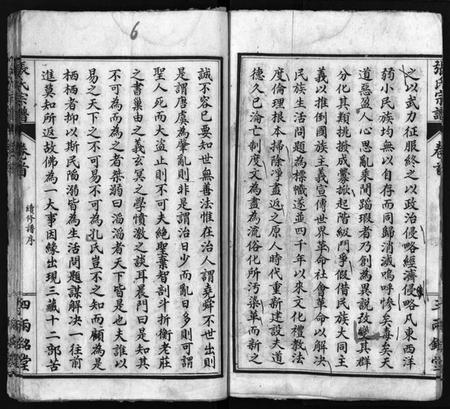 張氏宗譜
卷首
之以武力征服終之以政治侵略經濟侵略凡東西洋
弱小民族均無以自存而同歸消滅嗚呼慘矣毒矣天
道惡盈人心思亂乘間蹈瑕者乃創為異說孜變其群
分化其類挑撥成釁掀起階級鬥爭假借民族大同主
義以推倒國族主義宣傳世界革命社會革命以解決
民族生活問題為標幟遂並四千年以來文化禮教法
度倫理根本掃除凈盡返之原人時代重新建設夫道
德久已淪亡制度文為盡為流俗化所汚染革而新之
三 雨銘堂
6
誠不容已要知世無善法惟在治人謂堯舜不世出則
是謂唐虞為肇亂則非是謂治日少而亂日多則可謂
聖人死而大盜止則不可夫絕聖棄智剖斗折衡老莊
之書巢由之義玄冥之學憤激之談耳晨門曰是知其
不可為而為之者桀溺曰滔滔者天下皆是也夫誰以
易之天下之不可易不可為孔氏豈不之知而顧為是
栖栖者抑以斯民陷溺皆為生活問題謀解決一往前
進莫知所返故佛為一大事因緣出現三藏十二部苦
張氏宗譜
卷首
續修譜序
四 雨銘堂